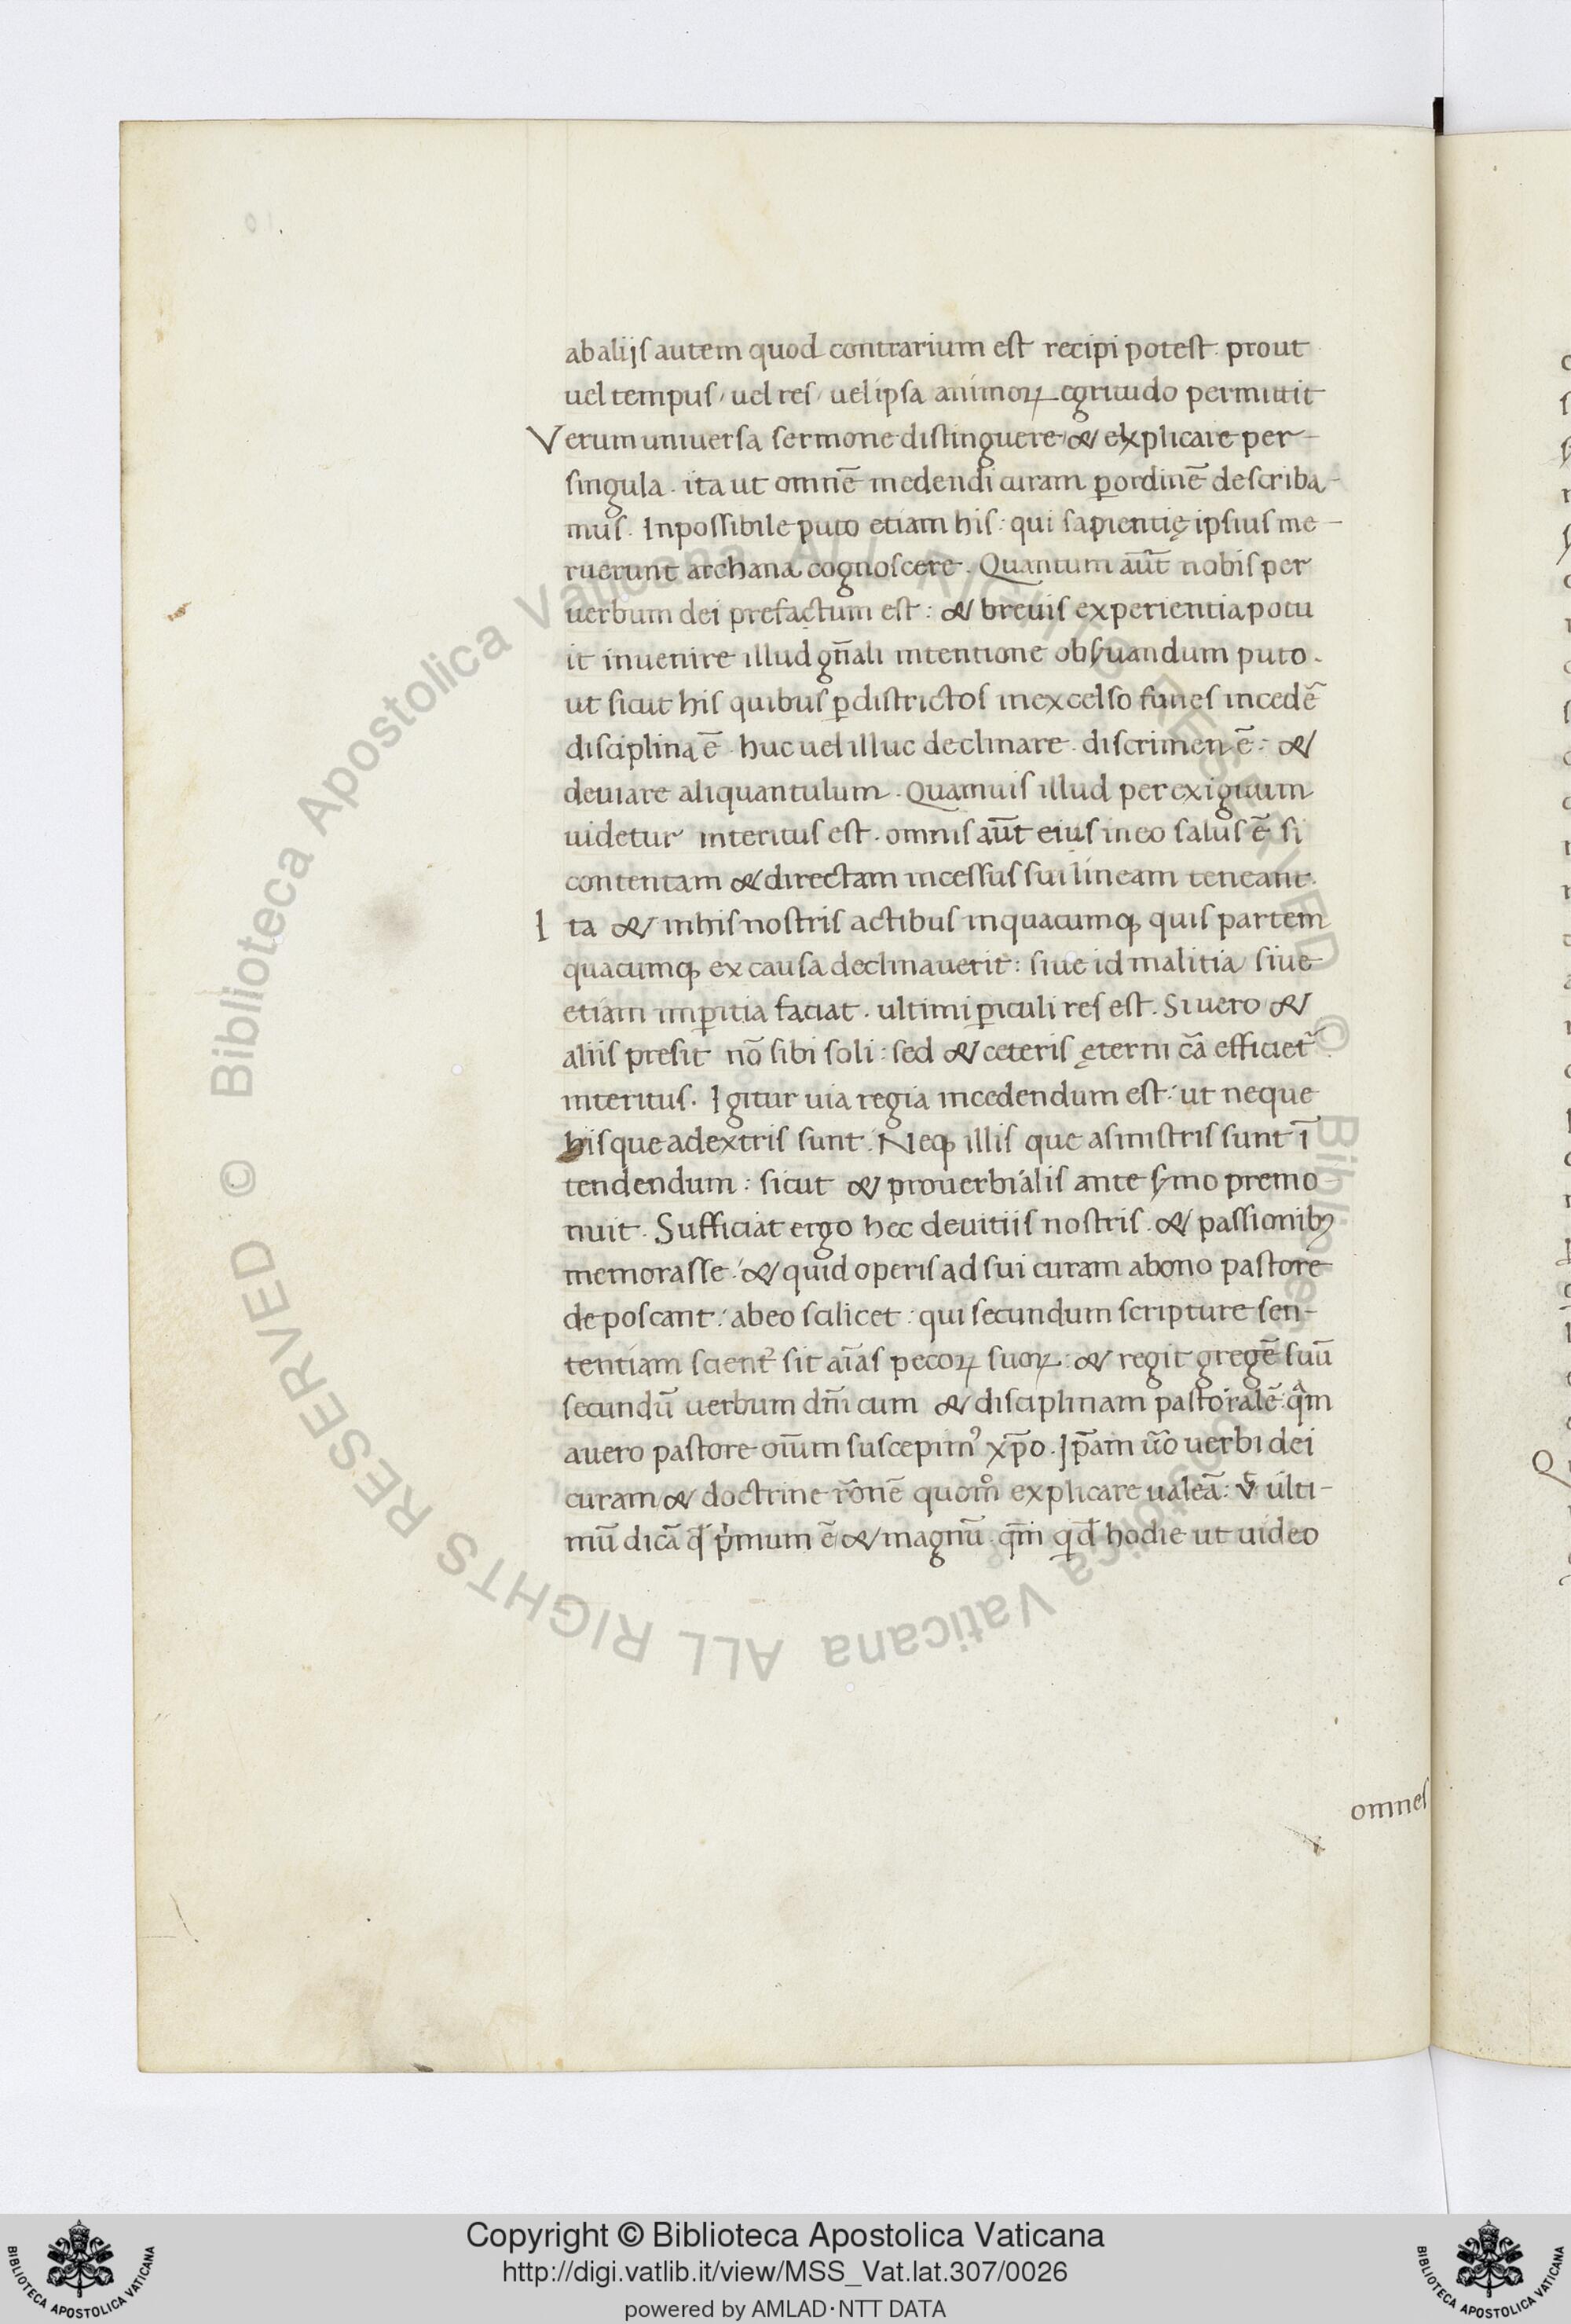 ab alijs autem quod contrarium est recipi potest. prout
uel tempus, uel res, uel ipsa animoꝝ egritudo permittit
Verum uniuersa sermone distinguere & explicare per-
singula. ita ut omnē medendi curam ꝑ ordinē describa-
mus. Inpossibile puto etiam his: qui sapientię ipsius me-
ruerunt archana cognoscere. Quantum aūt nobis per
uerbum dei prefactum est: & breuis experientia potu
it inuenire illud gn̄ali intentione obẜuandum puto.
ut sicut his quibus ꝑ districtos in excelso funes incedē
disciplina ē. huc uel illuc declinare. discrimen ē: &
deuiare aliquantulum. Quamuis illud per exiguum
uidetur interitus est. omnis aūt eius in eo salus ē si
contentam & directam incessus sui lineam teneant.
Ita & in his nostris actibus in quacumqꝫ quis partem
quacumqꝫ ex causa declinauerit: siue id malitia siue
etiam imꝑitia faciat. ultimi ꝑiculi res est. Si uero &
aliis presit nō sibi soli: sed & ceteris ęterni cā efficiet᷑
interitus. Igitur uia regia incedendum est: ut neque
his que a dextris sunt. Neqꝫ illis que a sinistris sunt ī
tendendum: sicut & prouerbialis ante ẜmo premo
nuit. Sufficiat ergo hec de uitiis nostris. & passionibꝫ
memorasse: & quid operis ad sui curam a bono pastore
deposcant: ab eo scilicet: qui secundum scripture sen-
tentiam scient᷑ sit aīas pecoꝝ suoꝝ: & regit gregē suū
secundū uerbum dn̄icum & disciplinam pastoralē. qm̄
a uero pastore oīum suscepimꝰ xp̄o. Ip̄am u̅o uerbi dei
curam & doctrine r̄onē quom̊ explicare ualeā: ul̓ ulti-
mū dicā q̓ p̓mum ē & magnū. qm̄ qd̄ hodie ut uideo
omnes
Copyright © Biblioteca Apostolica Vaticana
http://digi.vatlib.it/view/MSS_Vat.lat.307/0026
powered by AMLAD·NTT DATA
BIBLIOTECA APOSTOLICA VATICANA
BIBLIOTECA APOSTOLICA VATICANA
© Biblioteca Apostolica Vaticana ALL RIGHTS RESERVED © Biblioteca Apostolica Vaticana ALL RIGHTS RESERVED